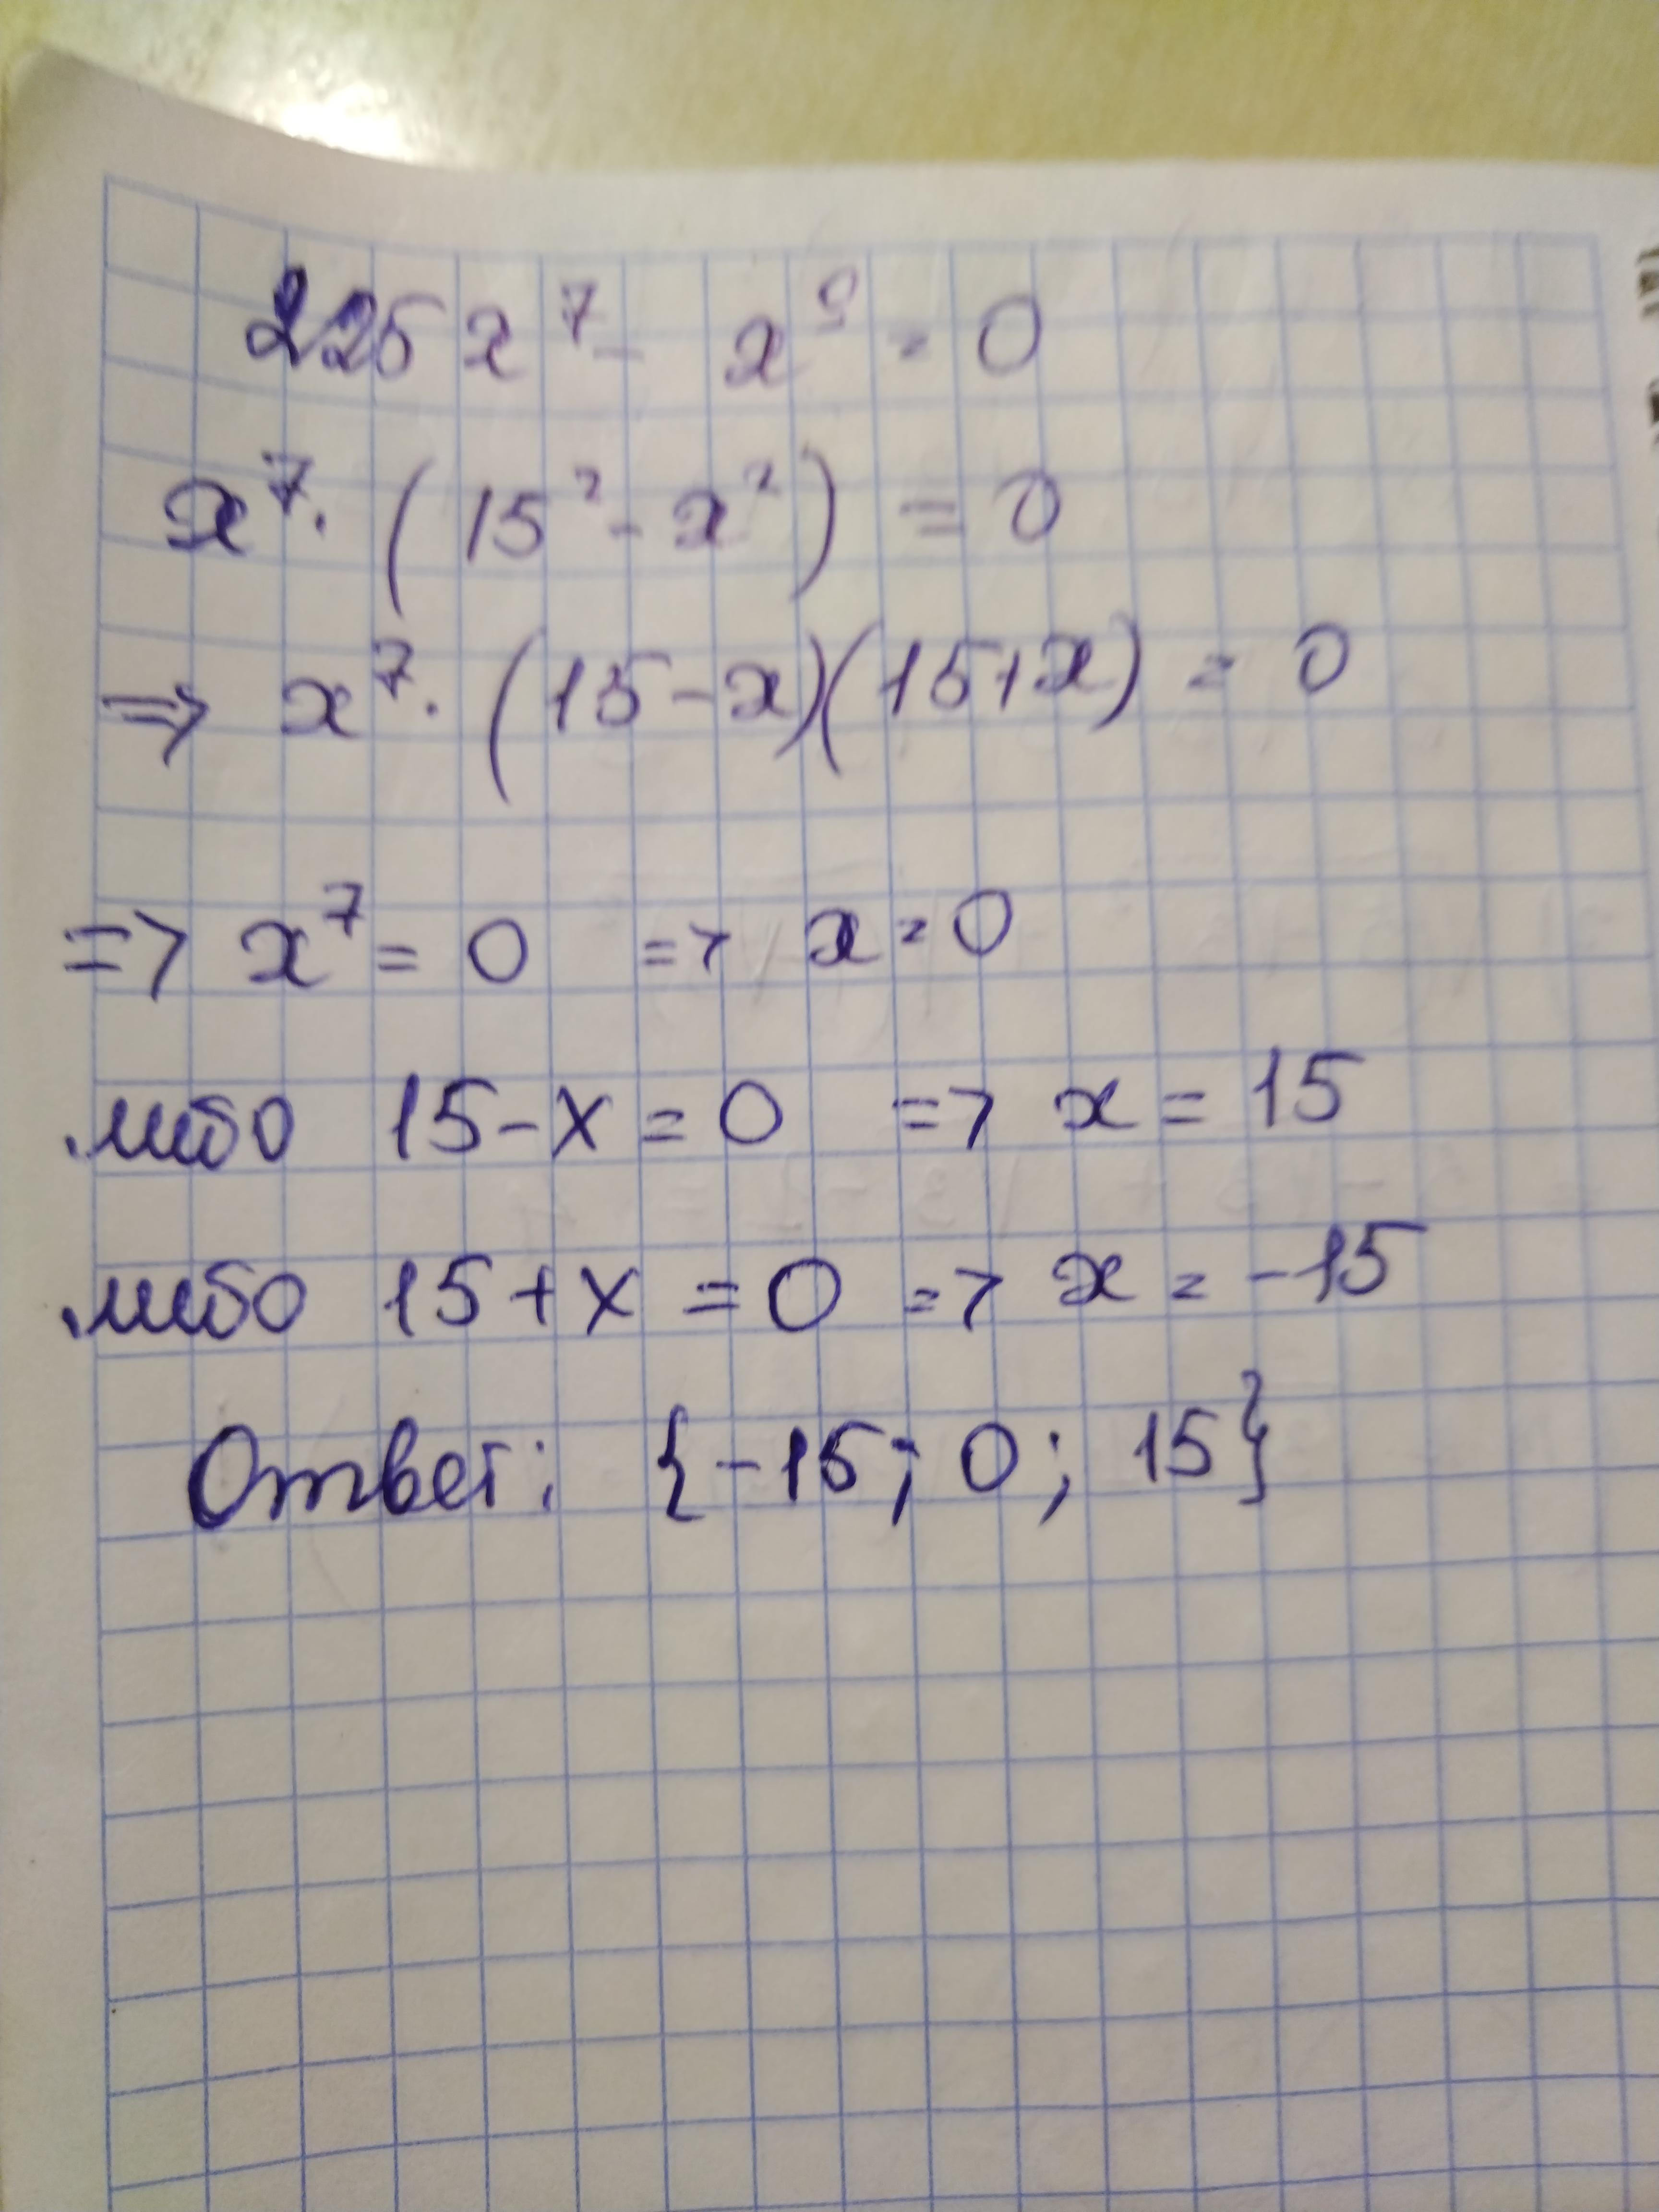 225x⁷ - x⁹ = 0
x⁷· (15² - x²) = 0
=> x⁷· (15-x)(15+x) = 0
=> x⁷ = 0 => x = 0
либо 15-x = 0 => x = 15
либо 15+x = 0 => x = -15
Ответ: {-15; 0; 15}